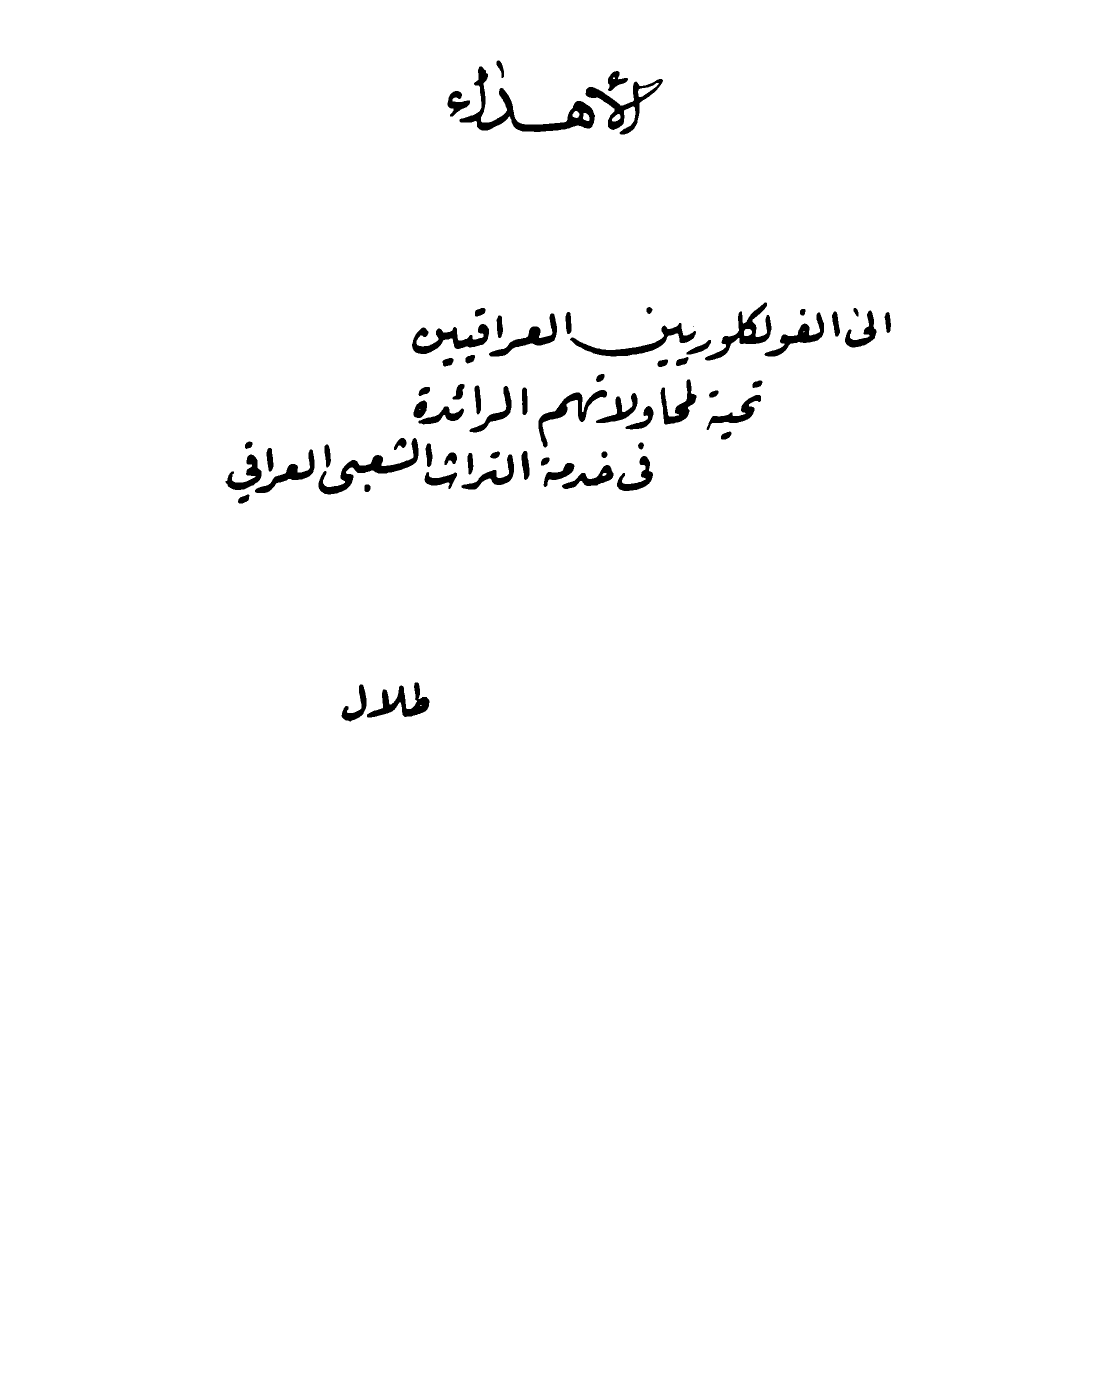 الأهداء
الى الفولكلوريين العراقيين
تحية لمحاولاتهم الرائدة
فى خدمة التراث الشعبى العراقي
طلال